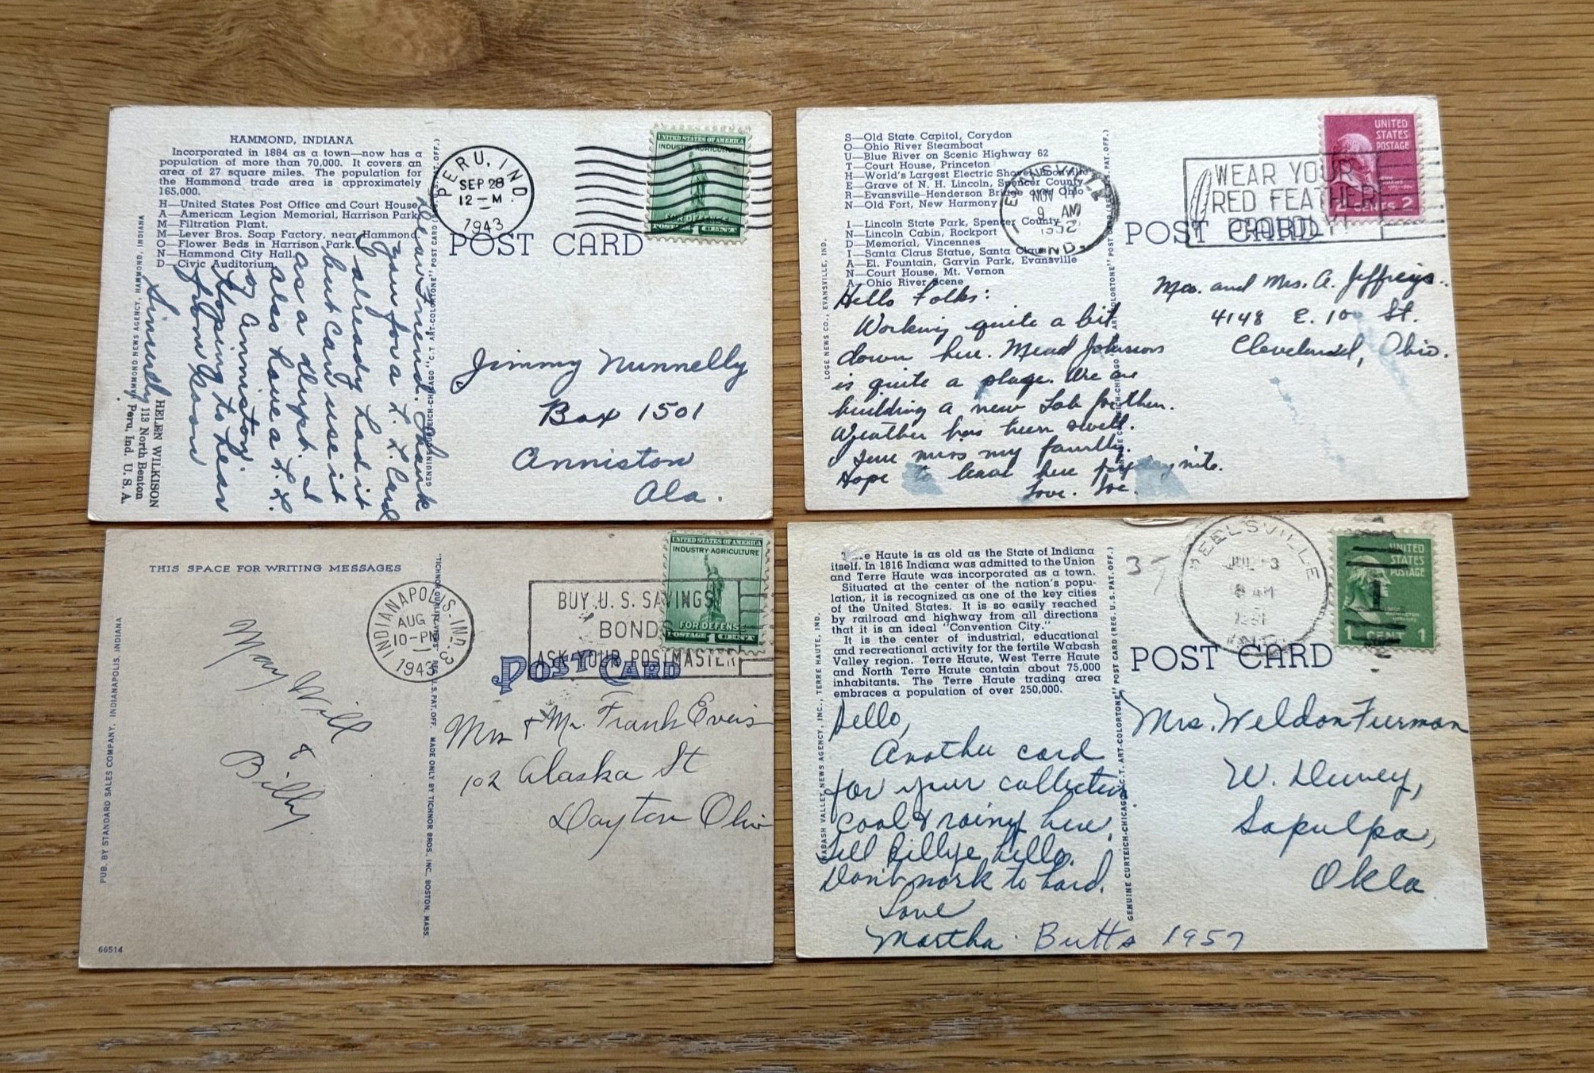 HAMMOND, INDIANA
Incorporated in 1884 as a town—now has a
population of more than 70,000. It covers an
area of 27 square miles. The population for
the Hammond trade area is approximately
165,000.
H—United States Post Office and Court House
A—American Legion Memorial, Harrison Park
M—Filtration Plant.
M—Lever Bros. Soap Factory, near Hammond
O—Flower Beds in Harrison Park.
N—Hammond City Hall
D—Civic Auditorium
HAMMOND NEWS AGENCY, HAMMOND, INDIANA
Dear Friend. Thank
you for a L. L. Card
I already had it
but can use it
as a dupl. I
also have a L. L.
of Anniston.
Hoping to hear
from you soon
Sincerely
HELEN WILKISON
113 North Benton
Peru, Ind. U. S. A.
GENUINE CURTEICH-CHICAGO "C.T. ART-COLORTONE" POST CARD PAT. OFF.)
PERU, IND.
SEP 28
12—M
1943
UNITED STATES OF AMERICA
INDUSTRY AGRICULTURE
FOR DEFENSE
1 CENT
POST CARD
Jimmy Nunnelly
Box 1501
Anniston
Ala.
S—Old State Capitol, Corydon
O—Ohio River Steamboat
U—Blue River on Scenic Highway 62
T—Court House, Princeton
H—World's Largest Electric Shovel, Boonville
E—Grave of N. H. Lincoln, Spencer County
R—Evansville-Henderson Bridge over Ohio
N—Old Fort, New Harmony
I—Lincoln State Park, Spencer County
N—Lincoln Cabin, Rockport
D—Memorial, Vincennes
I—Santa Claus Statue, Santa Claus
A—El. Fountain, Garvin Park, Evansville
N—Court House, Mt. Vernon
A—Ohio River Scene
LOGE NEWS CO., EVANSVILLE, IND.
Hello Folks:
Working quite a bit
down here. Mead Johnson
is quite a place. We are
building a new Lab for them.
Weather has been swell.
Sure miss my family.
Hope to leave here Friday nite.
Love. Joe.
EVANSVILLE
NOV
9 AM
1952
IND.
WEAR YOUR
RED FEATHER
PROUDLY
UNITED
STATES
POSTAGE
2 CENTS 2
POST CARD
Mr. and Mrs. A. Jeffreys.
4148 E. 100 St.
Cleveland, Ohio.
THIS SPACE FOR WRITING MESSAGES
PUB. BY STANDARD SALES COMPANY, INDIANAPOLIS, INDIANA
66514
May Will
&
Billy
MADE ONLY BY TICHNOR BROS., INC., BOSTON, MASS.
INDIANAPOLIS, IND.
AUG
10-PM
1943
3
BUY U. S. SAVINGS
BONDS
ASK YOUR POSTMASTER
UNITED STATES OF AMERICA
INDUSTRY AGRICULTURE
FOR DEFENSE
POSTAGE 1 CENT
POST CARD
Mrs & Mr. Frank Evers
102 Alaska St
Dayton Ohio
Terre Haute is as old as the State of Indiana
itself. In 1816 Indiana was admitted to the Union
and Terre Haute was incorporated as a town.
Situated at the center of the nation's popu-
lation, it is recognized as one of the key cities
of the United States. It is so easily reached
by railroad and highway from all directions
that it is an ideal "Convention City."
It is the center of industrial, educational
and recreational activity for the fertile Wabash
Valley region. Terre Haute, West Terre Haute
and North Terre Haute contain about 75,000
inhabitants. The Terre Haute trading area
embraces a population of over 250,000.
WABASH VALLEY NEWS AGENCY, INC., TERRE HAUTE, IND.
Hello,
Another card
for your collection
Cool & rainy here.
Tell Billye hello.
Don't work to hard.
Love
Martha Butts 1957
GENUINE CURTEICH-CHICAGO "C.T. ART-COLORTONE" POST CARD (REG. U.S. PAT. OFF.)
35
REELSVILLE
JUL 3
8 AM
IND.
UNITED
STATES
POSTAGE
1 CENT 1
POST CARD
Mrs. Weldon Furman
W. Dewey,
Sapulpa,
Okla